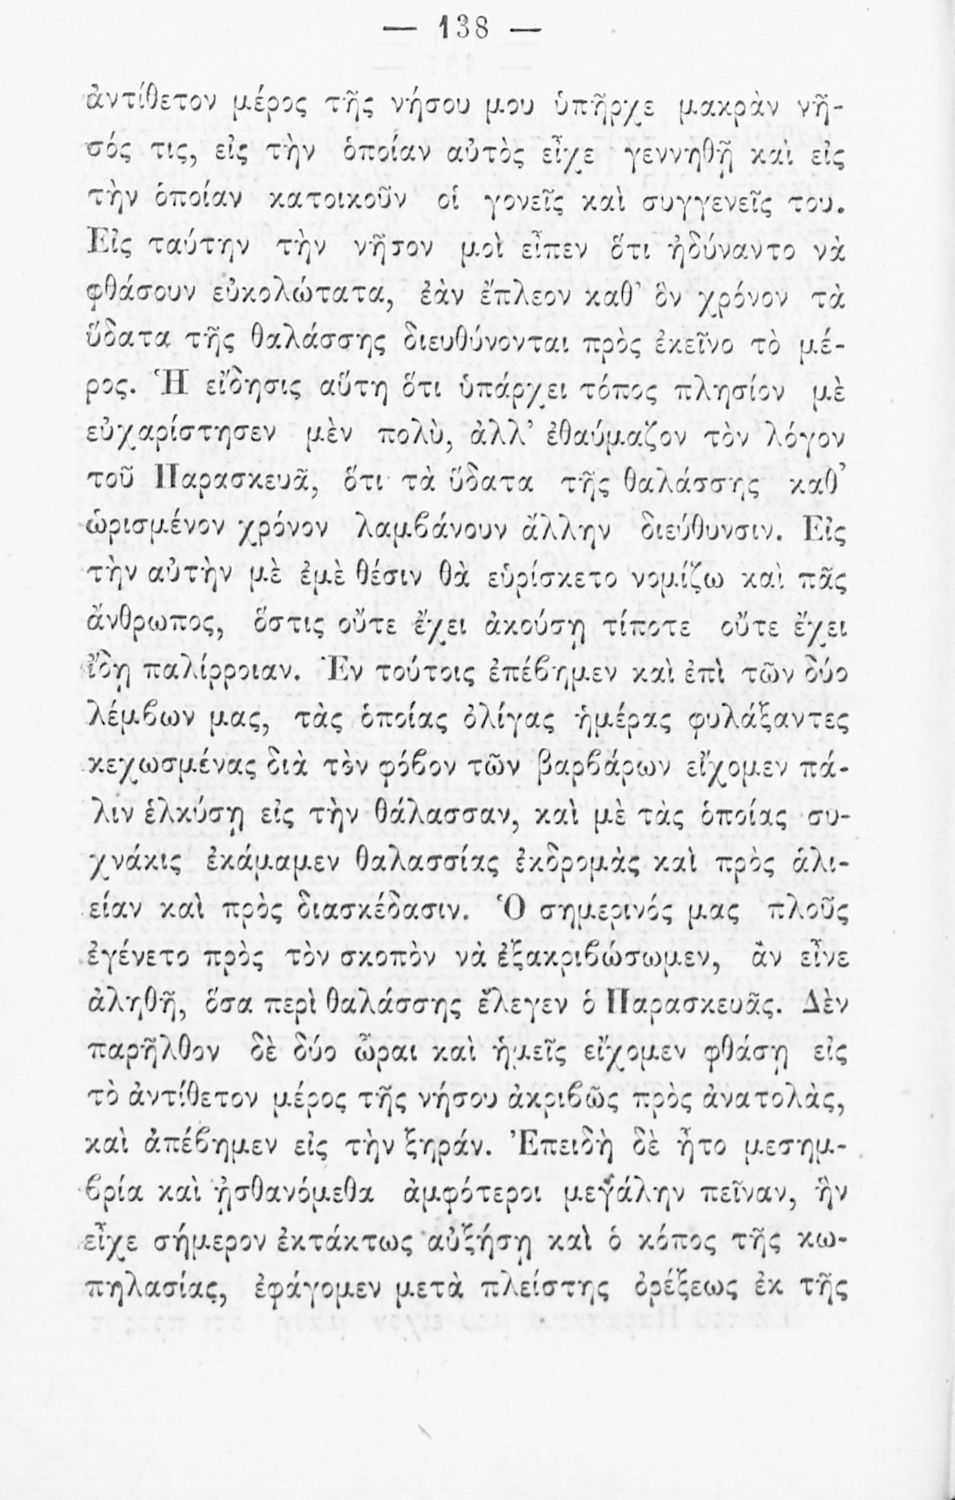 — 138 —
ἀντίθετον μέρος τῆς νήσου μου ὑπῆρχε μακρὰν νῆ-
σός τις, εἰς τὴν ὁποίαν αὐτὸς εἶχε γεννηθῆ καὶ εἰς
τὴν ὁποίαν κατοικοῦν οἱ γονεῖς καὶ συγγενεῖς του.
Εἰς ταύτην τὴν νῆσον μοὶ εἶπεν ὅτι ἠδύναντο νὰ
φθάσουν εὐκολώτατα, ἐὰν ἔπλεον καθ’ ὃν χρόνον τὰ
ὕδατα τῆς θαλάσσης διευθύνονται πρὸς ἐκεῖνο τὸ μέ-
ρος. Ἡ εἴδησις αὕτη ὅτι ὑπάρχει τόπος πλησίον μὲ
εὐχαρίστησεν μὲν πολὺ, ἀλλ’ ἐθαύμαζον τὸν λόγον
τοῦ Παρασκευᾶ, ὅτι τὰ ὕδατα τῆς θαλάσσης καθ’
ὡρισμένον χρόνον λαμβάνουν ἄλλην διεύθυνσιν. Εἰς
τὴν αὐτὴν μὲ ἐμὲ θέσιν θὰ εὑρίσκετο νομίζω καὶ πᾶς
ἄνθρωπος, ὅστις οὔτε ἔχει ἀκούσῃ τίποτε οὔτε ἔχει
ἴδῃ παλίρροιαν. Ἐν τούτοις ἐπέβημεν καὶ ἐπὶ τῶν δύο
λέμβων μας, τὰς ὁποίας ὀλίγας ἡμέρας φυλάξαντες
κεχωσμένας διὰ τὸν φόβον τῶν βαρβάρων εἴχομεν πά-
λιν ἑλκύσῃ εἰς τὴν θάλασσαν, καὶ μὲ τὰς ὁποίας συ-
χνάκις ἐκάμαμεν θαλασσίας ἐκδρομὰς καὶ πρὸς ἁλι-
είαν καὶ πρὸς διασκέδασιν. Ὁ σημερινός μας πλοῦς
ἐγένετο πρὸς τὸν σκοπὸν νὰ ἐξακριβώσωμεν, ἂν εἶνε
ἀληθῆ, ὅσα περὶ θαλάσσης ἔλεγεν ὁ Παρασκευᾶς. Δὲν
παρῆλθον δὲ δύο ὧραι καὶ ἡμεῖς εἴχομεν φθάσῃ εἰς
τὸ ἀντίθετον μέρος τῆς νήσου ἀκριβῶς πρὸς ἀνατολὰς,
καὶ ἀπέβημεν εἰς τὴν ξηράν. Ἐπειδὴ δὲ ἦτο μεσημ-
βρία καὶ ᾐσθανόμεθα ἀμφότεροι μεγάλην πεῖναν, ἣν
εἶχε σήμερον ἐκτάκτως αὐξήσῃ καὶ ὁ κόπος τῆς κω-
πηλασίας, ἐφάγομεν μετὰ πλείστης ὀρέξεως ἐκ τῆς